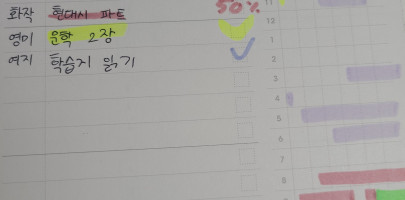 화작 현대시 파트 50%
영미 문학 2장
여지 학습지 읽기
11
12
1
2
3
4
5
6
7
8
9